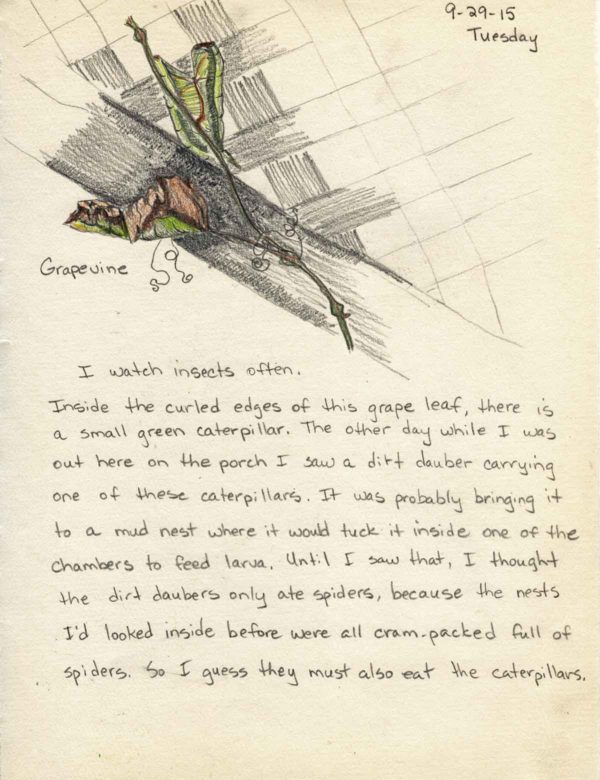 9-29-15
Tuesday
Grapevine
I watch insects often.
Inside the curled edges of this grape leaf, there is
a small green caterpillar. The other day while I was
out here on the porch I saw a dirt dauber carrying
one of these caterpillars. It was probably bringing it
to a mud nest where it would tuck it inside one of the
chambers to feed larva. Until I saw that, I thought
the dirt daubers only ate spiders, because the nests
I'd looked inside before were all cram-packed full of
spiders. So I guess they must also eat the caterpillars.